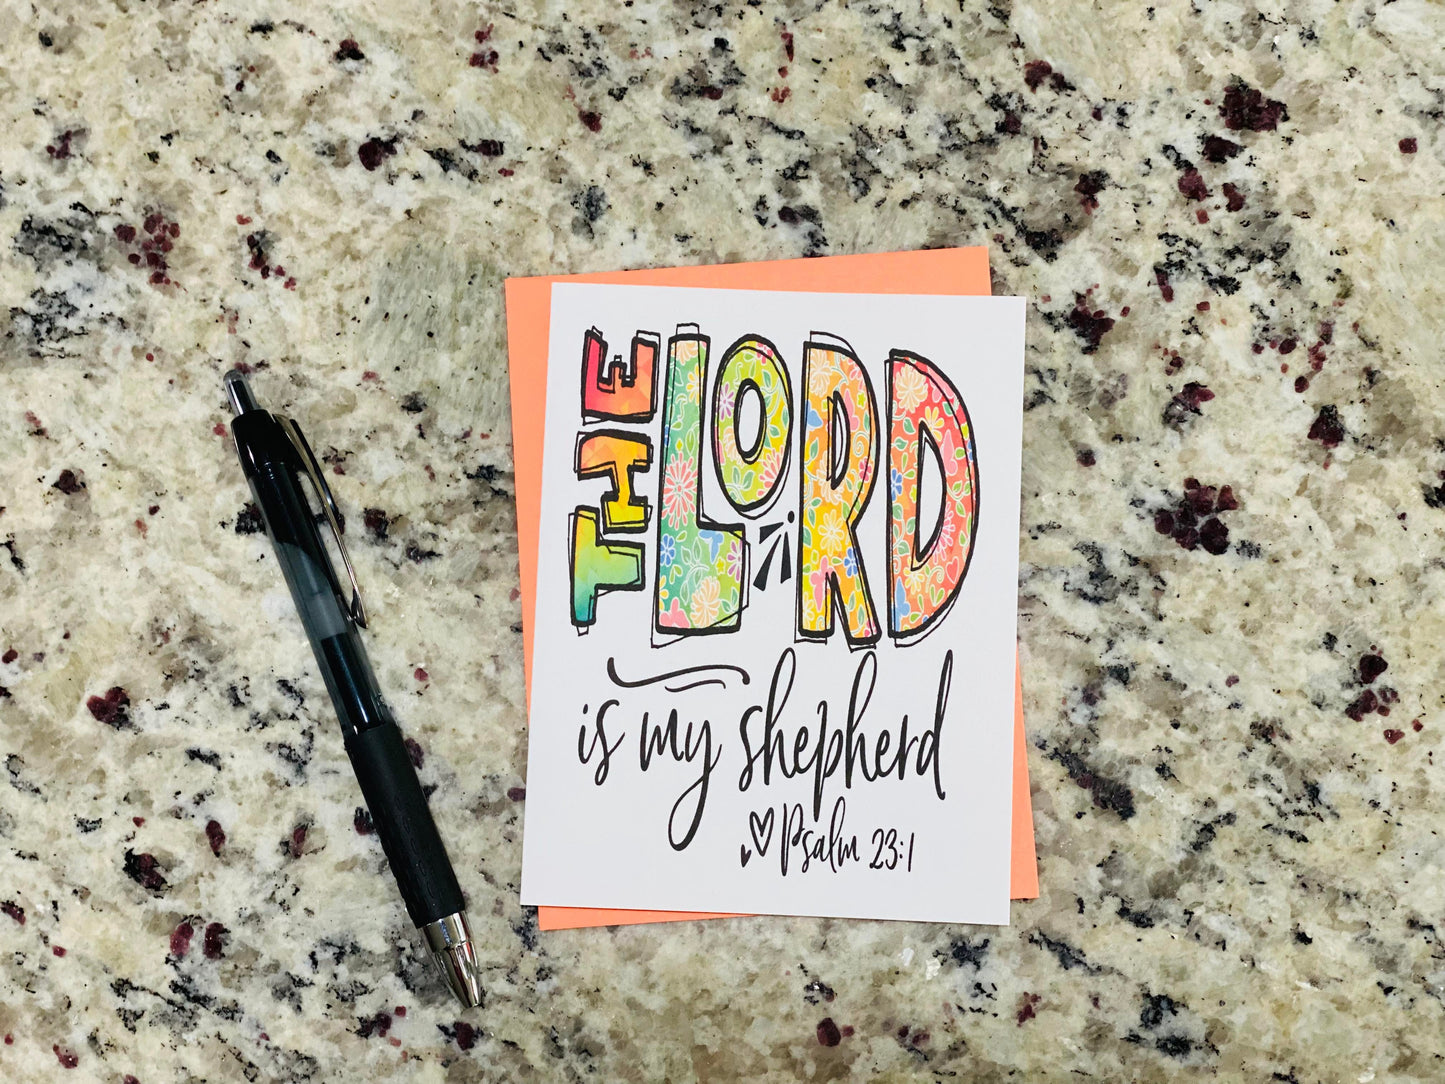 THE LORD
is my shepherd
Psalm 23:1